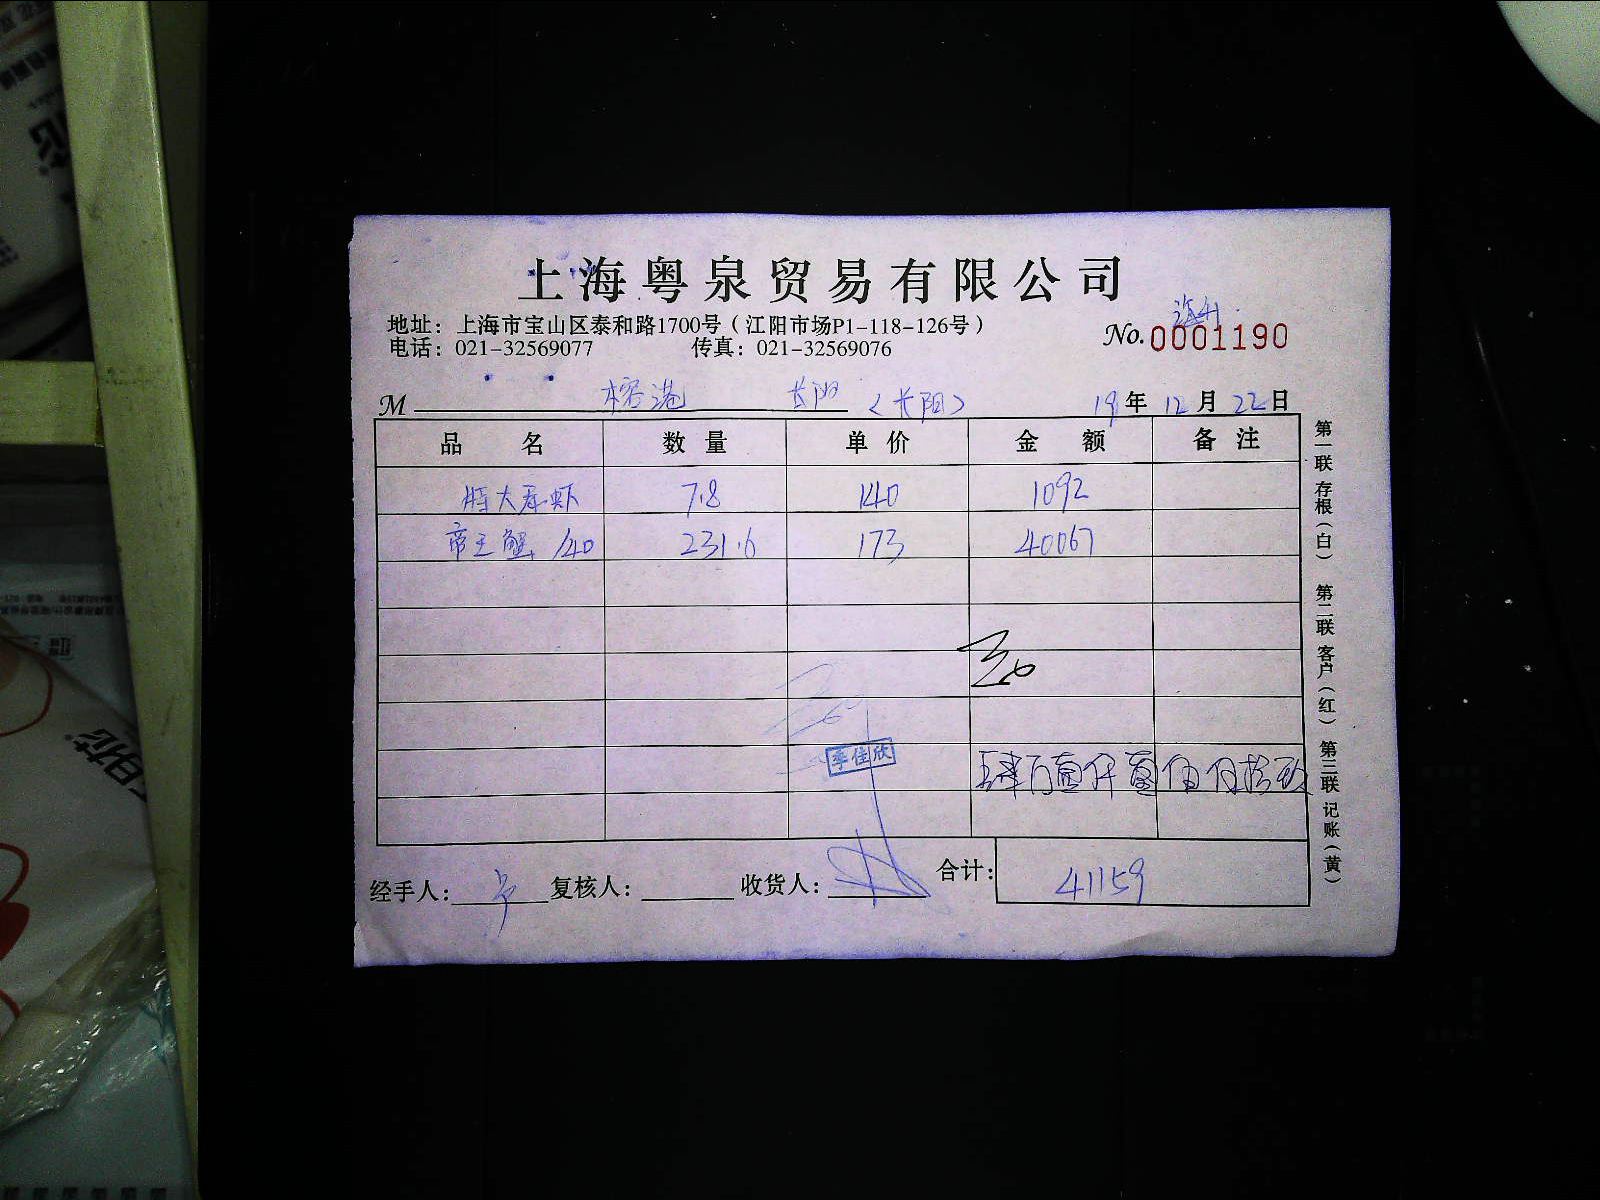 上海粤泉贸易有限公司
地址：上海市宝山区泰和路1700号（江阳市场P1-118-126号）
电话：021-32569077 传真：021-32569076
No. 0001190
M 榕港 长阳 （长阳） 19年12月22日
品名 数量 单价 金额 备注
特大春虾 7.8 140 1092
帝王蟹 /40 231.6 173 40067
李佳欣
经手人： 复核人： 收货人： 合计： 41159
第一联 存根（白） 第二联 客户（红） 第三联 记账（黄）